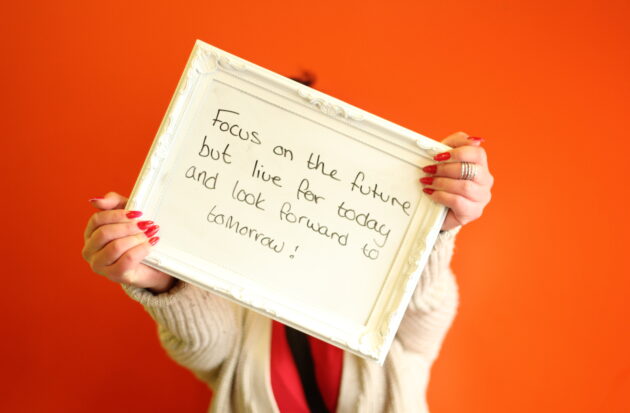 Focus on the future
but live for today
and look forward to
tomorrow!